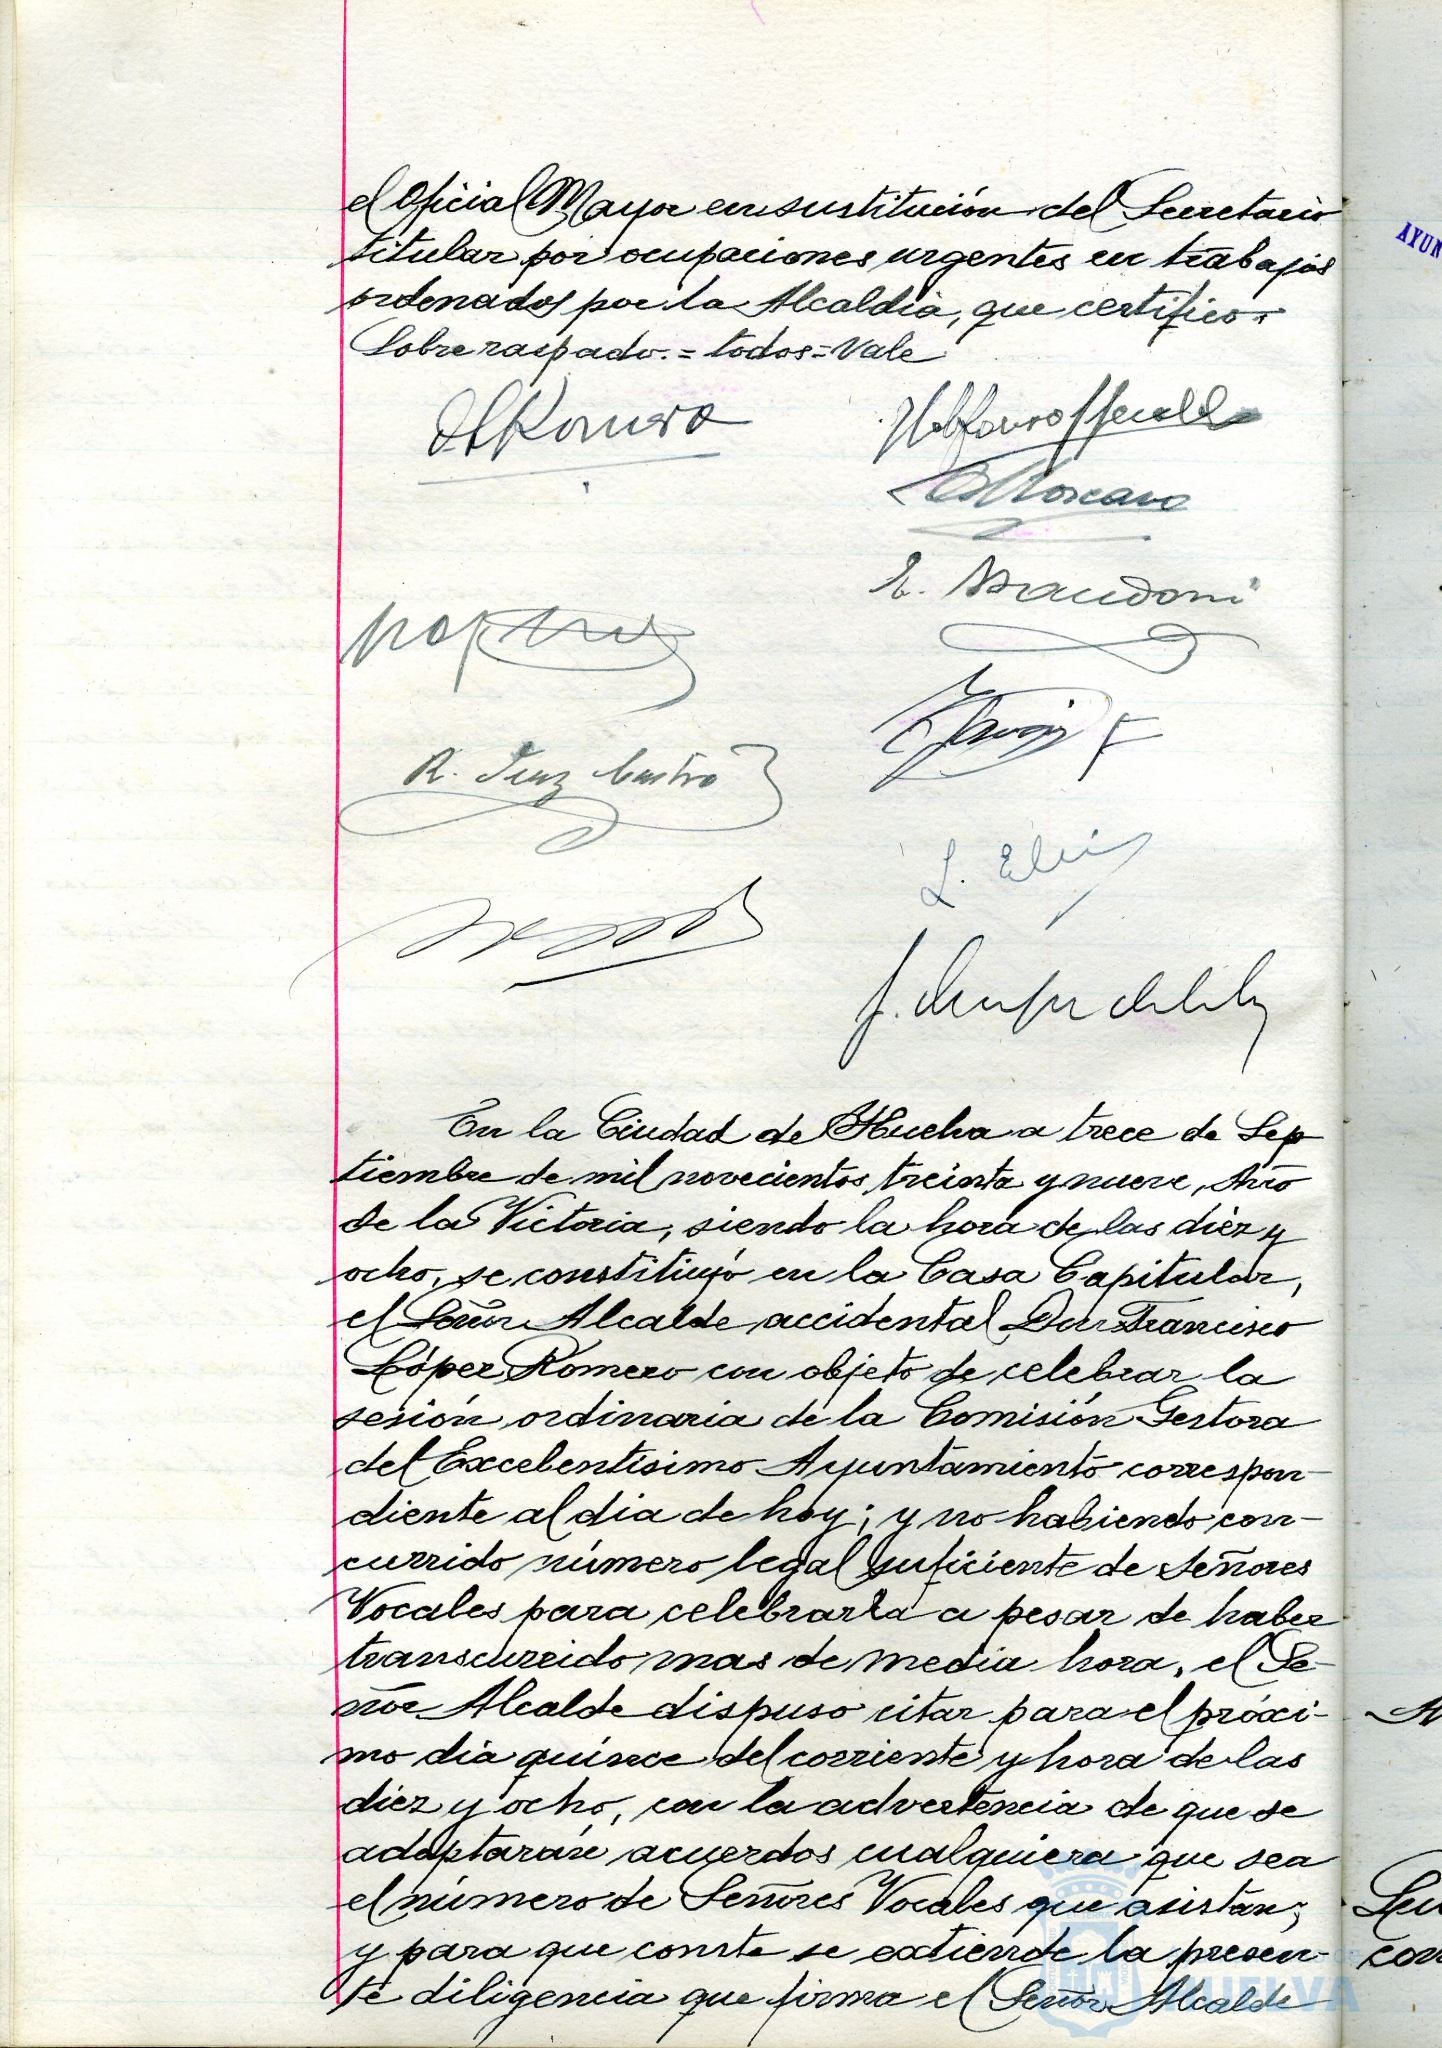 el Oficial Mayor en sustitución del Secretario
titular por ocupaciones urgentes en trabajos
ordenados por la Alcaldía, que certifico.
Sobre raspado.=todos=Vale
Romero
R. Diaz Castro
En la Ciudad de Huelva a trece de Sep
tiembre de mil novecientos treinta y nueve, Año
de la Victoria, siendo la hora de las diez y
ocho, se constituyó en la Casa Capitular,
el Señor Alcalde accidental Don Francisco
López Romero con objeto de celebrar la
sesión ordinaria de la Comisión Gestora
del Excelentísimo Ayuntamiento correspon-
diente al dia de hoy; y no habiendo con-
currido número legal suficiente de Señores
Vocales para celebrarla a pesar de haber
transcurrido mas de media hora, el Se-
ñor Alcalde dispuso citar para el próxi-
mo dia quince del corriente y hora de las
diez y ocho, con la advertencia de que se
adoptarán acuerdos cualquiera que sea
el número de Señores Vocales que asistan;
y para que conste se extiende la presen-
te diligencia que firma el Señor Alcalde
HUELVA
AYUN